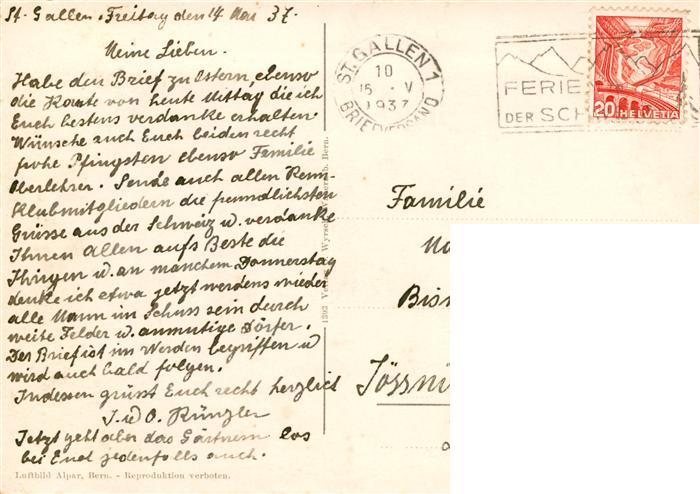 St. Gallen, Freitag den 14. Mai 37.
Meine Lieben.
Habe den Brief zu Ostern ebenso
die Karte von heute Mittag die ich
Euch bestens verdanke erhalten.
Wünsche auch Euch beiden recht
frohe Pfingsten ebenso Familie
Oberlehrer. Sende auch allen
Klubmitgliedern die freundlichsten
Grüsse aus der Schweiz u. verdanke
Ihnen Allen aufs Beste die
Ihrigen u. an manchem Donnerstag
denke ich etwa jetzt werdens wieder
alle Mann im Schuss sein durch
weite Felder u. anmutige Dörfer.
Der Brief ist im Werden begriffen u
wird auch bald folgen.
Indessen grüsst Euch recht herzlich
J. u O. Künzler
Jetzt geht aber das Gärtnern los
bei Euch jedenfalls auch.
Luftbild Alpar, Bern. - Reproduktion verboten.
1393
Bern.
ST. GALLEN 1
10
15 · V
1937
BRIEFVERSAND
FERIE
DER SCH
20 HELVETIA
Familie
Bis
Jössni